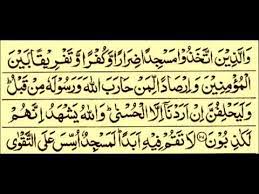 وَالَّذِيْنَ اتَّخَذُوْا مَسْجِدًا ضِرَارًا وَّكُفْرًا وَّتَفْرِيْقًۢا بَيْنَ
الْمُؤْمِنِيْنَ وَاِرْصَادًا لِّمَنْ حَارَبَ اللّٰهَ وَرَسُوْلَهٗ مِنْ قَبْلُ ؕ
وَلَيَحْلِفُنَّ اِنْ اَرَدْنَاۤ اِلَّا الْحُسْنٰى ؕ وَاللّٰهُ يَشْهَدُ اِنَّهُمْ
لَكٰذِبُوْنَ ۝ لَا تَقُمْ فِيْهِ اَبَدًا ؕ لَمَسْجِدٌ اُسِّسَ عَلَى التَّقْوٰى